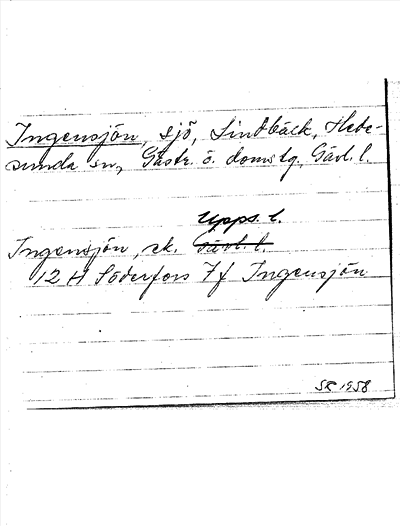 Ingensjön, sjö, Lindbäck, Hede-
sunda sn, Gästr. ö. domslg. Gävl. l.
Upps. l.
Ingensjön, ek. Gävl. l.
12 H Söderfors 7f Ingensjön
SR 1958